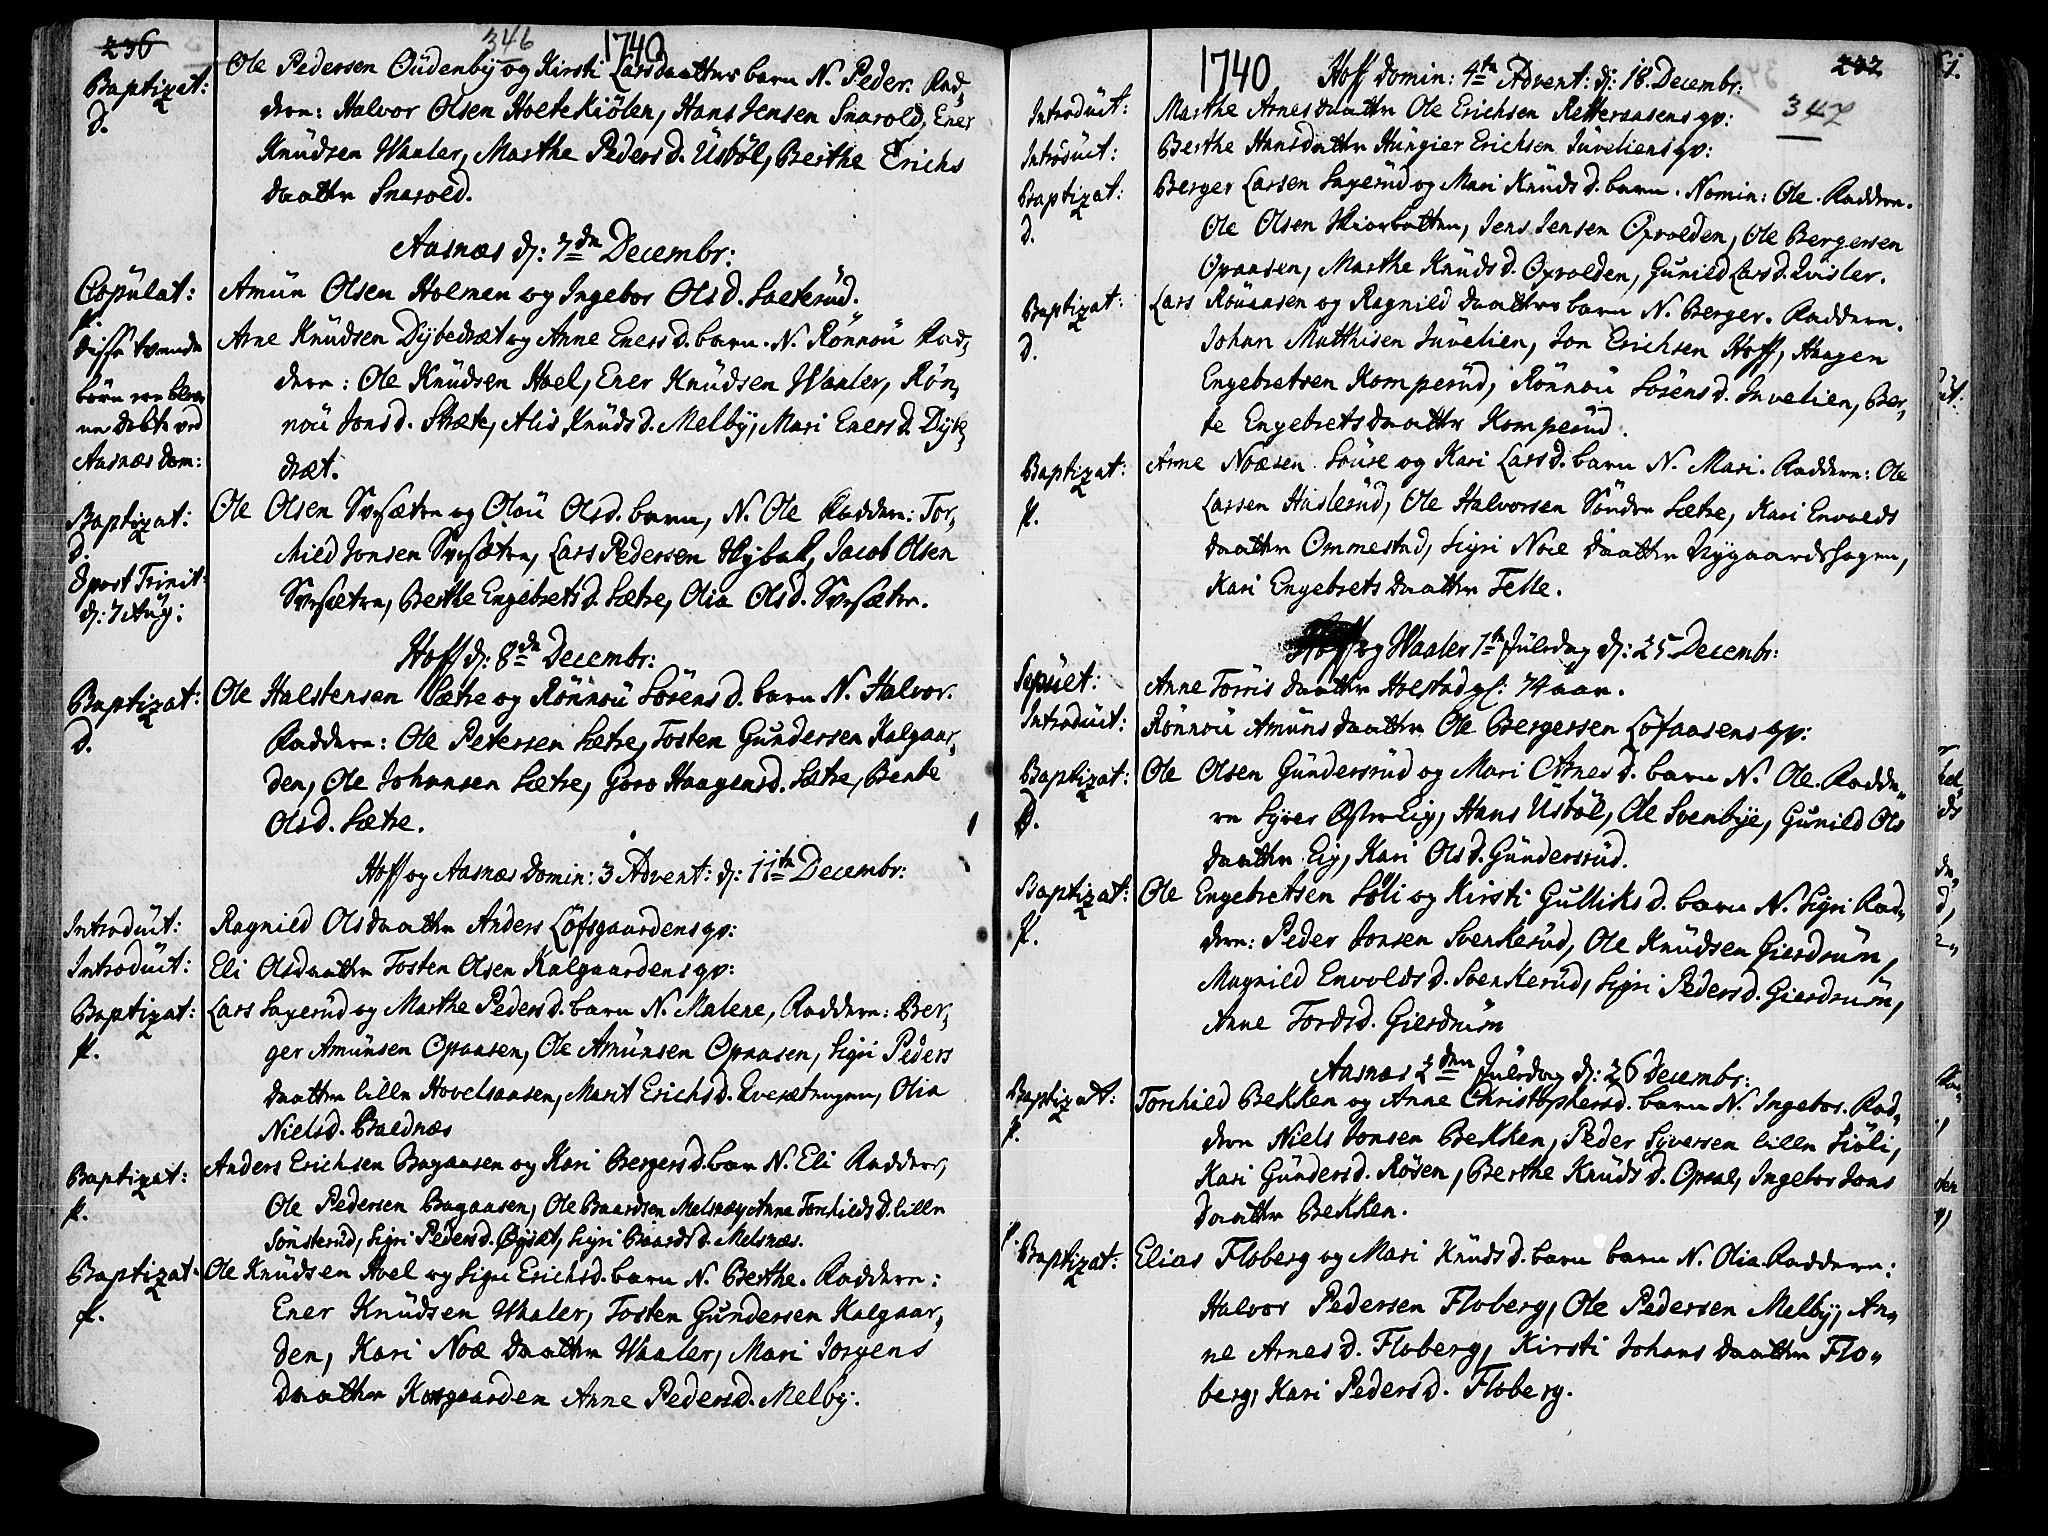 236
346
1740
Baptizat: Ole Pedersen Oudenby og Kirsti Larsdaatters barn N. Peder. Fad„
d. dere: Halvor Olsen Holtekiölen, Hans Jensen Snarold, Ener
Knudsen Waaler, Marthe Pedersd. Usböl, Berthe Erichs
daatter Snarold.
Aasnæs d: 7de Decembr:
Copulat: Amun Olsen Holmen og Ingebor Olsd. Sæterud.
disse tvende Arne Knudsen Dybedræt og Anne Enersd. barn. N. Rönnou Fad„
börn ere blev„ dere: Ole Knudsen Hoel, Ener Knudsen Waaler, Rön„
ne döbte ved nou Jonsd. Stræte, Alis Knudsd. Melby, Mari Enersd. Dybe„
Aasnæs dom: dræt.
Baptizat: Ole Olsen Svesætre og Olou Olsd. barn, N. Ole Faddere: Tor„
d. kild Jonsen Svesætre, Lars Pedersen Skybak, Jacob Olsen
8 post Trinit: Svesætre, Berthe Engebretsd. Sætre, Olia Olsd. Svesætre.
d: 7 Aug:
Hoff d: 8de Decembr:
Baptizat: Ole Halstensen Sætre og Rönnou Sörensd. barn N. Halvor.
d. Faddere: Ole Petersen Sætre, Tosten Gundersen Kalgaar„
den, Ole Johansen Sætre, Goro Haagensd. Sætre, Bente
Olsd. Sætre.
Hoff og Aasnæs Domin: 3 Advent: d: 11te Decembr:
Introduit: Ragnild Olsdaatter Anders Löfsgaardens qv:
Introduit: Eli Olsdaatter Tosten Olsen Kalgaardens qv:
Baptizat: Lars Saxerud og Marthe Pedersd. barn N. Malene, Faddere: Ber„
p. ger Amunsen Opaasen, Ole Amunsen Opaasen, Sigri Peders
daatter lille Hovelsaasen, Marit Erichsd. Kvesætrugen, Olia
Nielsd. Baldnæs
Baptizat: Anders Erichsen Bagaasen og Kari Bergersd. barn N. Eli Faddere,
p. Ole Pedersen Bagaasen, Ole Baardsen Melsnæs, Anne Torchildsd. lille
Sönsterud, Sigri Pedersd. Öysæt, Sigri Baardsd. Melsnæs.
Baptizat: Ole Knudsen Hoel og Sigri Erichsd. barn N. Berthe. Faddere:
p. Ener Knudsen Waaler, Tosten Gundersen Kalgaar„
den, Kari Noe daatter Waaler, Mari Jorgens
daatter Korgaarden Anne Pedersd. Melby.
1740 Hoff Domin: 4te Advent: d: 18. Decembr:
237
347
Introduit: Marthe Arnesdaatter Ole Erichsen Retteraasens qv:
Introduit: Berthe Hansdaatter Hungier Erichsen Juveliens qv:
Baptizat: Berger Larsen Saxerud og Mari Knudsd. barn. Nomin: Ole. Faddere.
d. Ole Olsen Skiarbatten, Jens Jensen Oxvolden, Ole Bergersen
Opaasen, Marthe Knudsd. Oxvolden, Gunild Larsd. Quisler.
Baptizat: Lars Rouaasen og Ragnild daatters barn N. Berger. Faddere.
d. Johan Matthisen Juvelien, Jon Erichsen Hoff, Haagen
Engebretsen Komperud, Rönnou Sörensd. Juvelien, Ber„
te Engebretsdaatter Komperud.
Baptizat: Arne Noæsen Soure og Kari Larsd. barn N. Mari. Faddere: Ole
p. Larsen Haslerud, Ole Halvorsen Söndre Sætre, Kari Envolds
daatter Ommestad, Sigri Noe daatter Nygaardshagen,
Kari Engebretsdaatter Felle.
Hoff og Waaler 1te Juledag d: 25 Decembr:
Sepult: Anne Torris daatter Holstad gl: 74 aar.
Introduit: Rönnou Amunsdaatter Ole Bergersen Löfaasens qv:
Baptizat: Ole Olsen Gundersrud og Mari Arnesd. barn N. Ole. Fadde„
D. re Syver Öster Eig, Hans Usböl, Ole Svenbye, Gunild Ols
daatter Eig, Kari Olsd. Gundersrud.
Baptizat: Ole Engebretsen Söli og Kirsti Gulliksd. barn N. Sigri Fad„
p. dere: Peder Jonsen Svenkerud, Ole Knudsen Gierdrum,
Magnild Envoldsd. Svenkerud, Sigri Pedersd. Gierdrum,
Anne Tordsd. Gierdrum
Aasnæs 2den Juledag d: 26 Decembr:
Baptizat: Torchild Bekken og Anne Christophersd. barn N. Ingebor. Fad„
p. dere Niels Jonsen Bekken, Peder Syversen lille Siöli,
Kari Gundersd. Rösen, Berthe Knudsd. Opsal, Ingebor Jons
daatter Bekken.
p. Baptizat: Elias Floberg og Mari Knudsd. barn barn N. Olia. Faddere:
Halvor Pedersen Floberg, Ole Pedersen Melby, An„
ne Arnesd. Floberg, Kirsti Johans daatter Flo„
berg, Kari Pedersd. Floberg.